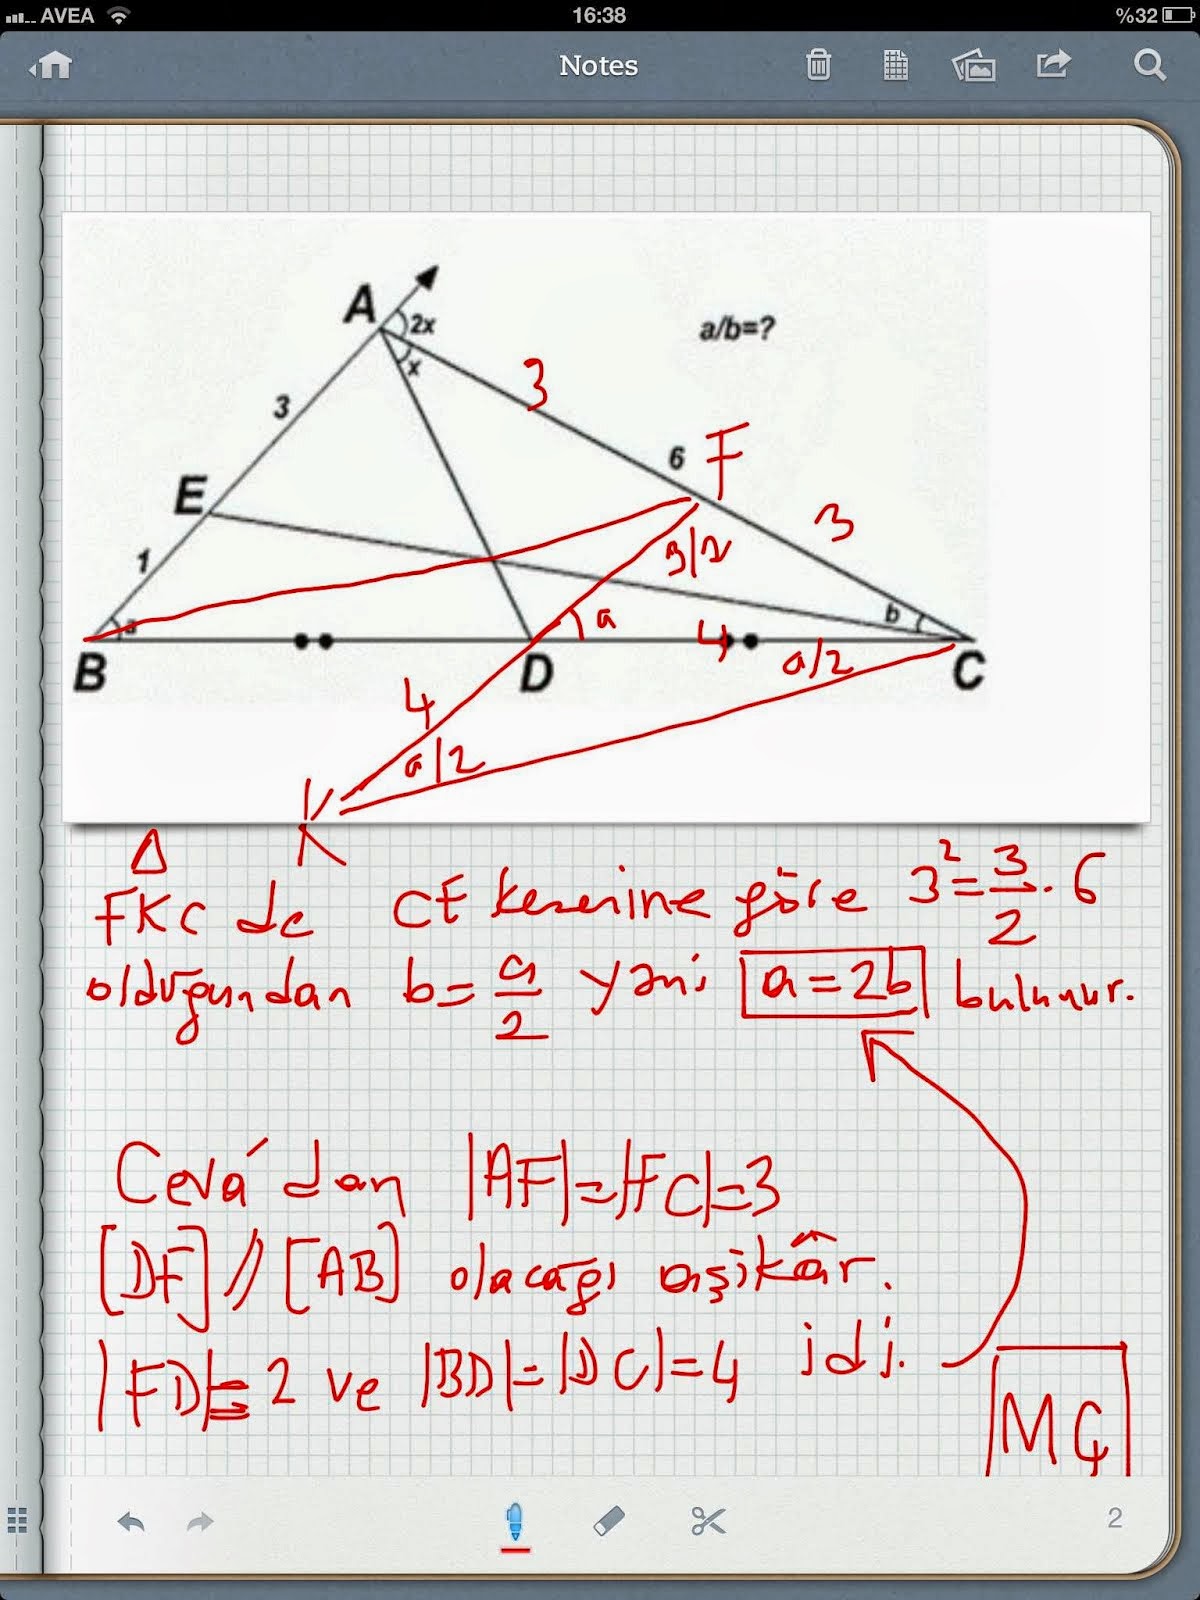 AVEA 16:38 %32
Notes
A 2x a/b=?
x 3
3 6 F
E 3
1 3/2 b
a a
B D 4 a/2 C
4
a/2
K
Δ
FKC de CE kesenine göre 3²=3/2.6
olduğundan b=a/2 yani a=2b bulunur.
Ceva'dan |AF|=|FC|=3
[DF]//[AB] olacağı aşikâr.
|FD|=2 ve |BD|=|DC|=4 idi.
MÇ
2